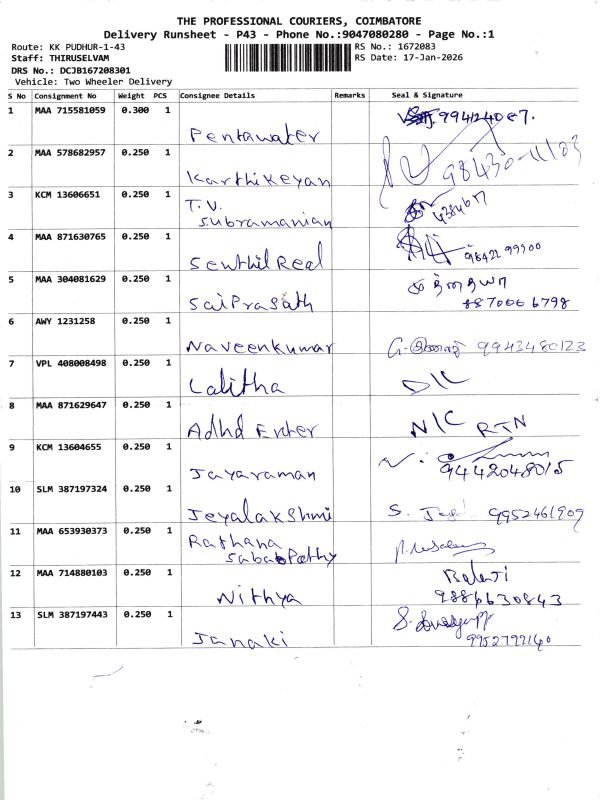 THE PROFESSIONAL COURIERS, COIMBATORE
Delivery Runsheet - P43 - Phone No.:9047080280 - Page No.:1
Route: KK PUDHUR-1-43
RS No.: 1672083
Staff: THIRUSELVAM
RS Date: 17-Jan-2026
DRS No.: DCJB167208301
Vehicle: Two Wheeler Delivery
S No Consignment No Weight PCS Consignee Details Remarks Seal & Signature
1 MAA 715581059 0.300 1 Pentawater
2 MAA 578682957 0.250 1 Karthikeyan 98430-11103
3 KCM 13606651 0.250 1 T.V.
Subramanian
4 MAA 871630765 0.250 1 Senthil Real 98421 99900
5 MAA 304081629 0.250 1 Sai Prasath
8870006798
6 AWY 1231258 0.250 1 Naveenkumar 9943480123
7 VPL 408008498 0.250 1 Lalitha D/L
8 MAA 871629647 0.250 1 Adhd Enter N/C RTN
9 KCM 13604655 0.250 1 Jayaraman 9442048015
10 SLM 387197324 0.250 1 Jeyalakshmi S. 9952461909
11 MAA 653930373 0.250 1 Rathana
Sabapathy
12 MAA 714880103 0.250 1 Nithya Balaji
9886630843
13 SLM 387197443 0.250 1 Janaki
9952799140